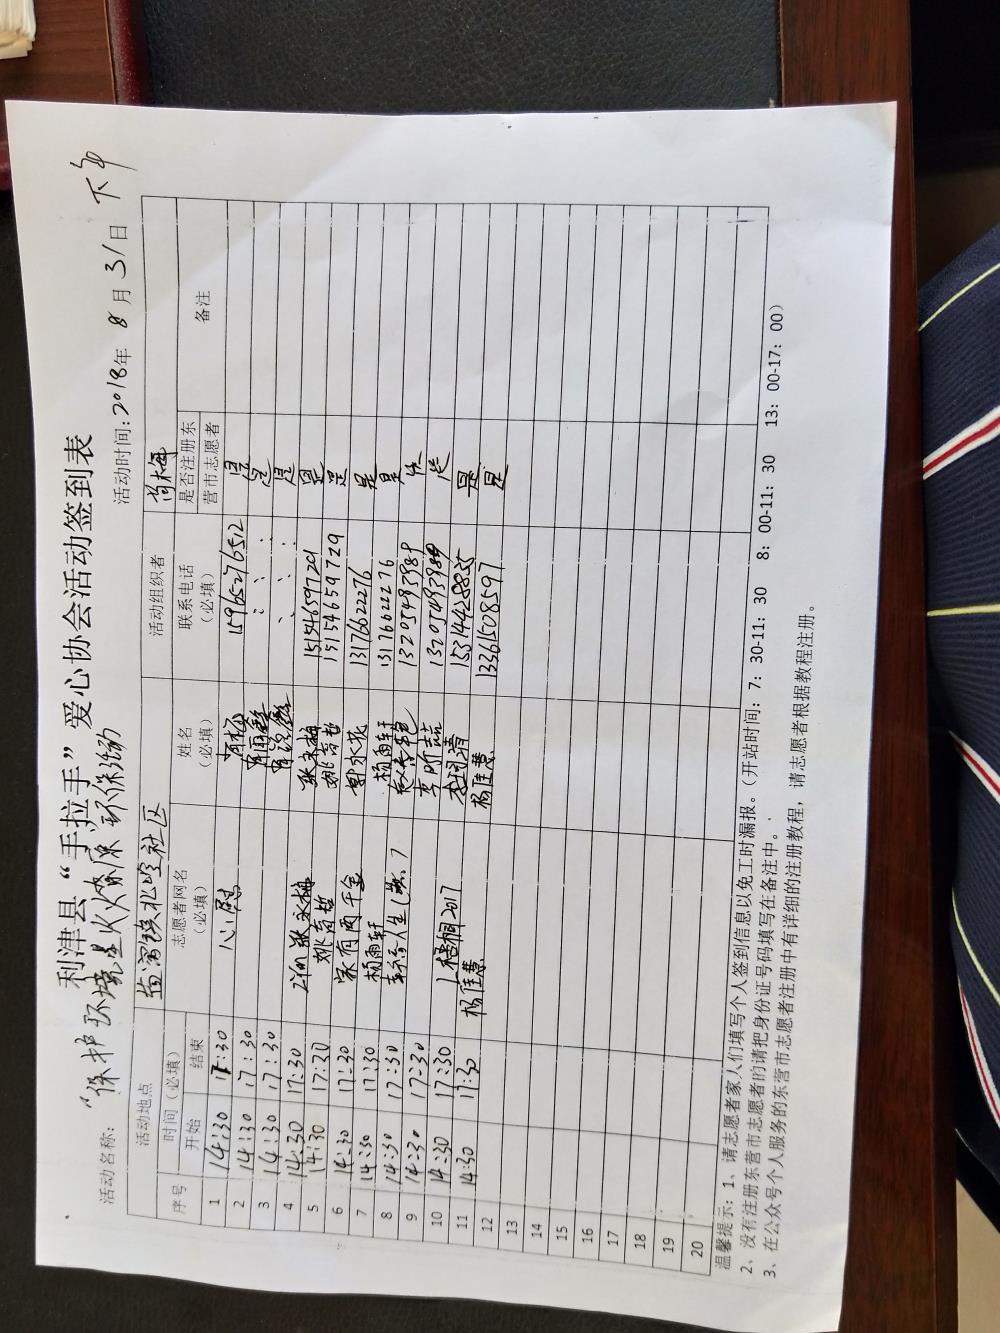 利津县“手拉手”爱心协会活动签到表
活动名称： “保护环境星火燎原”环保活动 活动时间：2018年 8 月 31 日 下午
活动地点 北岭社区 活动组织者 尚梅
序号 时间（必填） 志愿者网名（必填） 姓名（必填） 联系电话（必填） 是否注册东营市志愿者 备注
开始 结束
1 14:30 17:30 心慰 1596527652 是
2 14:30 17:30 是
3 14:30 17:30 是
4 14:30 17:30 张永梅 张永梅 15154659729 是
5 14:30 17:30 姚孝哲 姚孝哲 15154659729 是
6 14:30 17:30 家有两千金 13176622276 是
7 14:30 17:30 杨雨轩 杨雨轩 13176022276 是
8 14:30 17:30 13205493989 是
9 14:30 17:30 李昕喆 13205493989 是
10 14:30 17:30 梧桐2017 15314428825 是
11 14:30 17:30 杨佳慧 杨佳慧 13361508597 是
12
13
14
15
16
17
18
19
20
温馨提示：1、请志愿者家人们填写个人签到信息以免工时漏报。（开站时间：7：30-11：30 8：00-11：30 13：00-17：00）
2、没有注册东营市志愿者的请把身份证号码填写在备注中。
3、在公众号个人服务的东营市志愿者注册中有详细的注册教程，请志愿者根据教程注册。